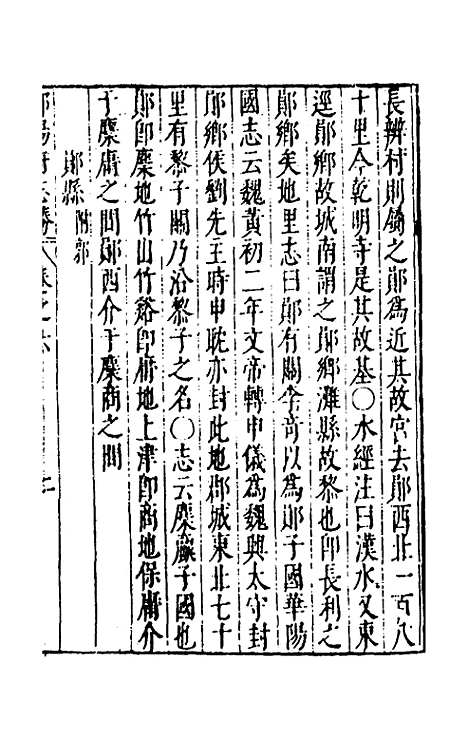 長辨村則錫之鄖為近其故宮去鄖西北一百八
十里今乾明寺是其故基○水經注曰漢水又東
逕鄖鄉故城南謂之鄖鄉灘縣故黎也即長利之
鄖鄉矣地里志曰鄖有關李竒以為鄖子國華陽
國志云魏黃初二年文帝轉申儀為魏興太守封
鄖鄉侯劉先主時申耽亦封此地郡城東北七十
里有黎子關乃沿黎子之名○志云麇嬴子國也
鄖即麇地竹山竹谿即庸地上津即商地保庸介
于麇庸之間鄖西介于麇商之間
鄖縣附郭